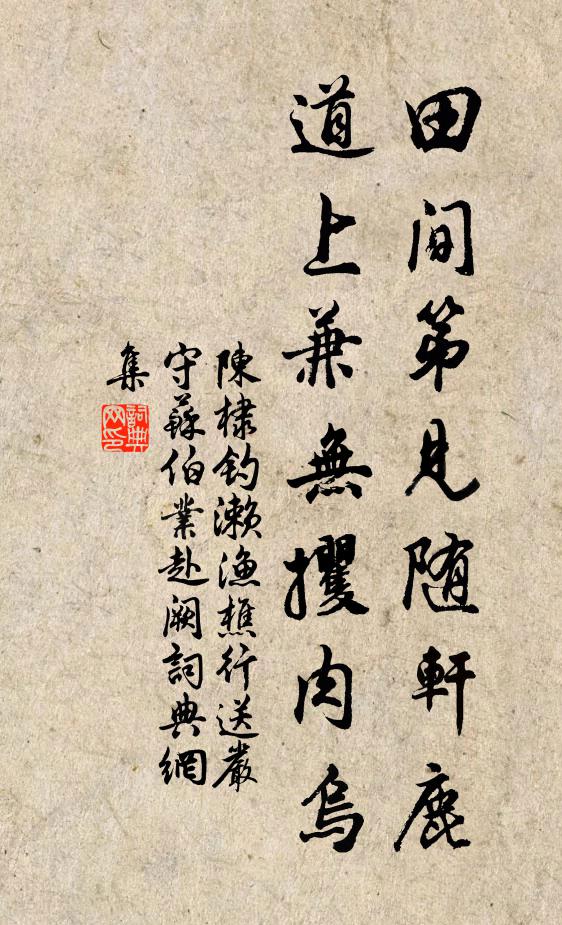 田間第見随軒鹿
道上兼無攫肉烏
陳棣釣瀨漁樵行送嚴
守蘇伯業赴闕詞典網
集
詞典網印